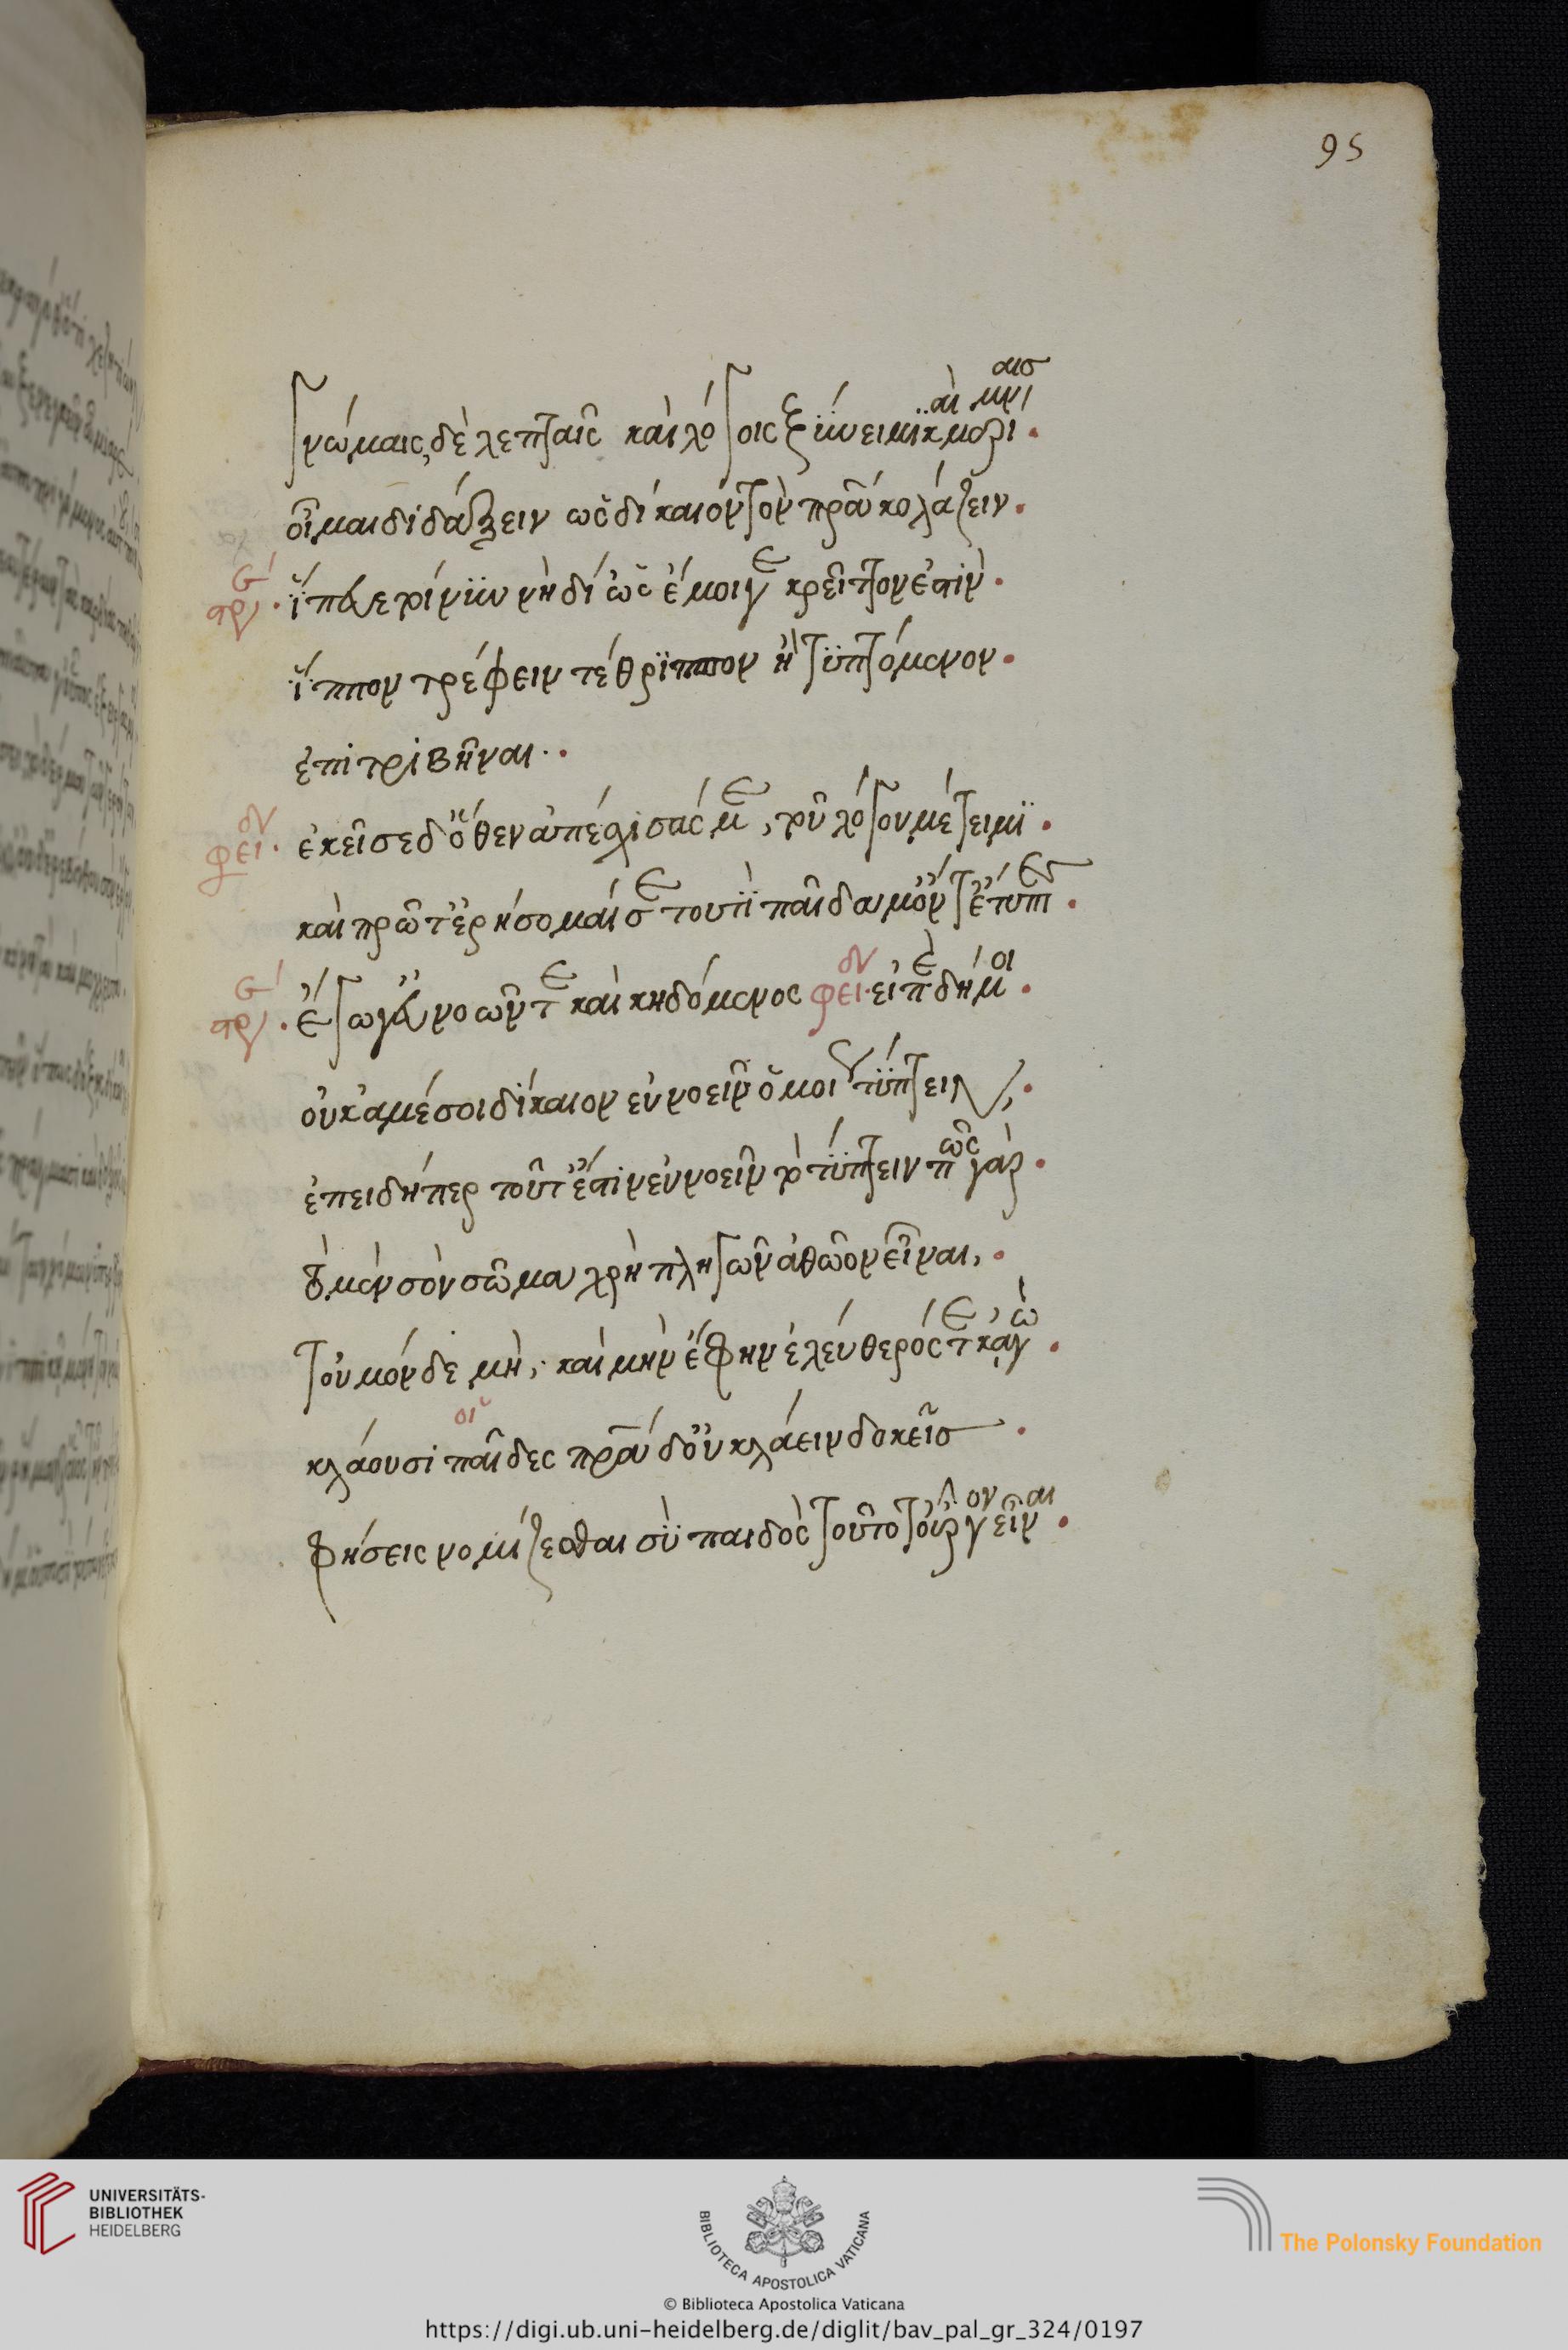 95
γνώμαις, δὲ λεπταῖς καὶ λόγοις ξύνειμι καὶ μερίμναις.
οἶμαι διδάξειν ὡς δίκαιον τὸν πατέρα κολάζειν.
στρ. ἵππευε τοίνυν νὴ δί' ὡς ἔμοιγε κρεῖττον ἐστὶν.
ἵππον τρέφειν τέθριππον ἢ τυπτόμενον.
ἐπιτριβῆναι.
φειδ. ἐκεῖσε δ' ὅθεν ἀπέσχισάς με, τοῦ λόγου μέτειμι.
καὶ πρῶτ' ἐρήσομαί σε τουτὶ παῖδα μ' ὄντ' ἔτυπτες.
στρ. ἔγωγε εὐνοῶν τε καὶ κηδόμενος φειδ. εἰπὲ δή μοι.
οὐ κἀμέ σοι δίκαιον εὐνοεῖν ὁμοίως τύπτειν.
ἐπειδήπερ τοῦτ' ἔστιν εὐνοεῖν τὸ τύπτειν πῶς γὰρ.
τὸ μὲν σὸν σῶμα χρὴ πληγῶν ἀθῶον εἶναι,.
τοὐμὸν δε μὴ, καὶ μὴν ἔφην ἐλεύθερός τε κἀγὼ.
κλάουσι παῖδες πατέρα δ' οὐ κλάειν δοκεῖς.
φήσεις νομίζεσθαι σὺ παιδὸς τοῦτο τοὖργον εἶναι.
UNIVERSITÄTS-
BIBLIOTHEK
HEIDELBERG
BIBLIOTECA APOSTOLICA VATICANA
The Polonsky Foundation
© Biblioteca Apostolica Vaticana
https://digi.ub.uni-heidelberg.de/diglit/bav_pal_gr_324/0197